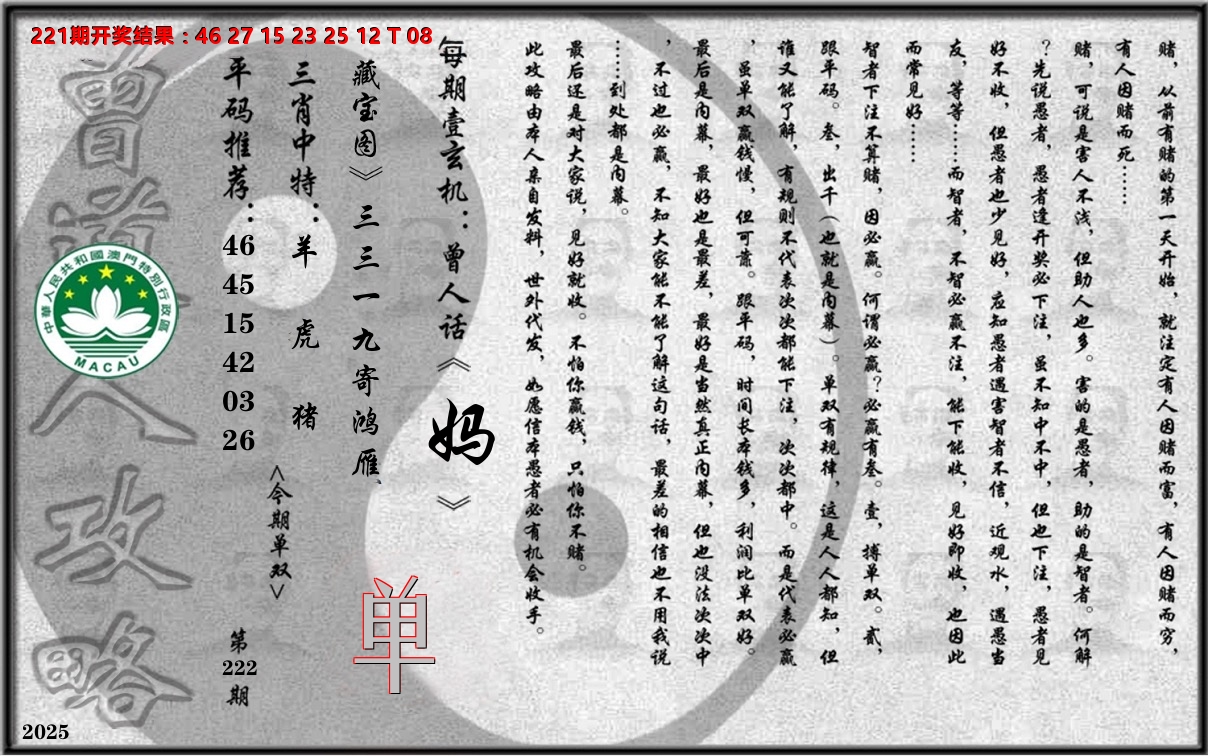 221期开奖结果：46 27 15 23 25 12 T 08
赌，从前有赌的第一天开始，就注定有人因赌而富，有人因赌而穷，
有人因赌而死……
赌，可说是害人不浅，但助人也多。害的是愚者，助的是智者。何解
？先说愚者，愚者逢开奖必下注，虽不知中不中，但也下注，愚者见
好不收，但愚者也少见好，应知愚者遇害智者不信，近观水，遇愚当
友，等等……而智者，不智必赢不注，能下能收，见好即收，也因此
而常见好……
智者下注不算赌，因必赢。何谓必赢？必赢有叁。壹，搏单双。贰，
跟平码。叁，出千（也就是内幕）。单双有规律，这是人人都知，但
谁又能了解，有规则不代表次次都能下注，次次都中。而是代表必赢
，虽单双赢钱慢，但可靠。跟平码，时间长本钱多，利润比单双好。
最后是内幕，最好也是最差，最好是当然真正内幕，但也没法次次中
，不过也必赢，不知大家能不能了解这句话，最差的相信也不用我说
……到处都是内幕。
最后还是对大家说，见好就收。不怕你赢钱，只怕你不赌。
此攻略由本人亲自发料，世外代发，如愿信本愚者必有机会收手。
每期壹玄机：曾人话《妈》
藏宝图》三三一九寄鸿雁、
单
三肖中特：羊 虎 猪
<今期单双>
平码推荐：46 45 15 42 03 26
第222期
曾道人攻略
中華人民共和國澳門特別行政區
MACAU
2025